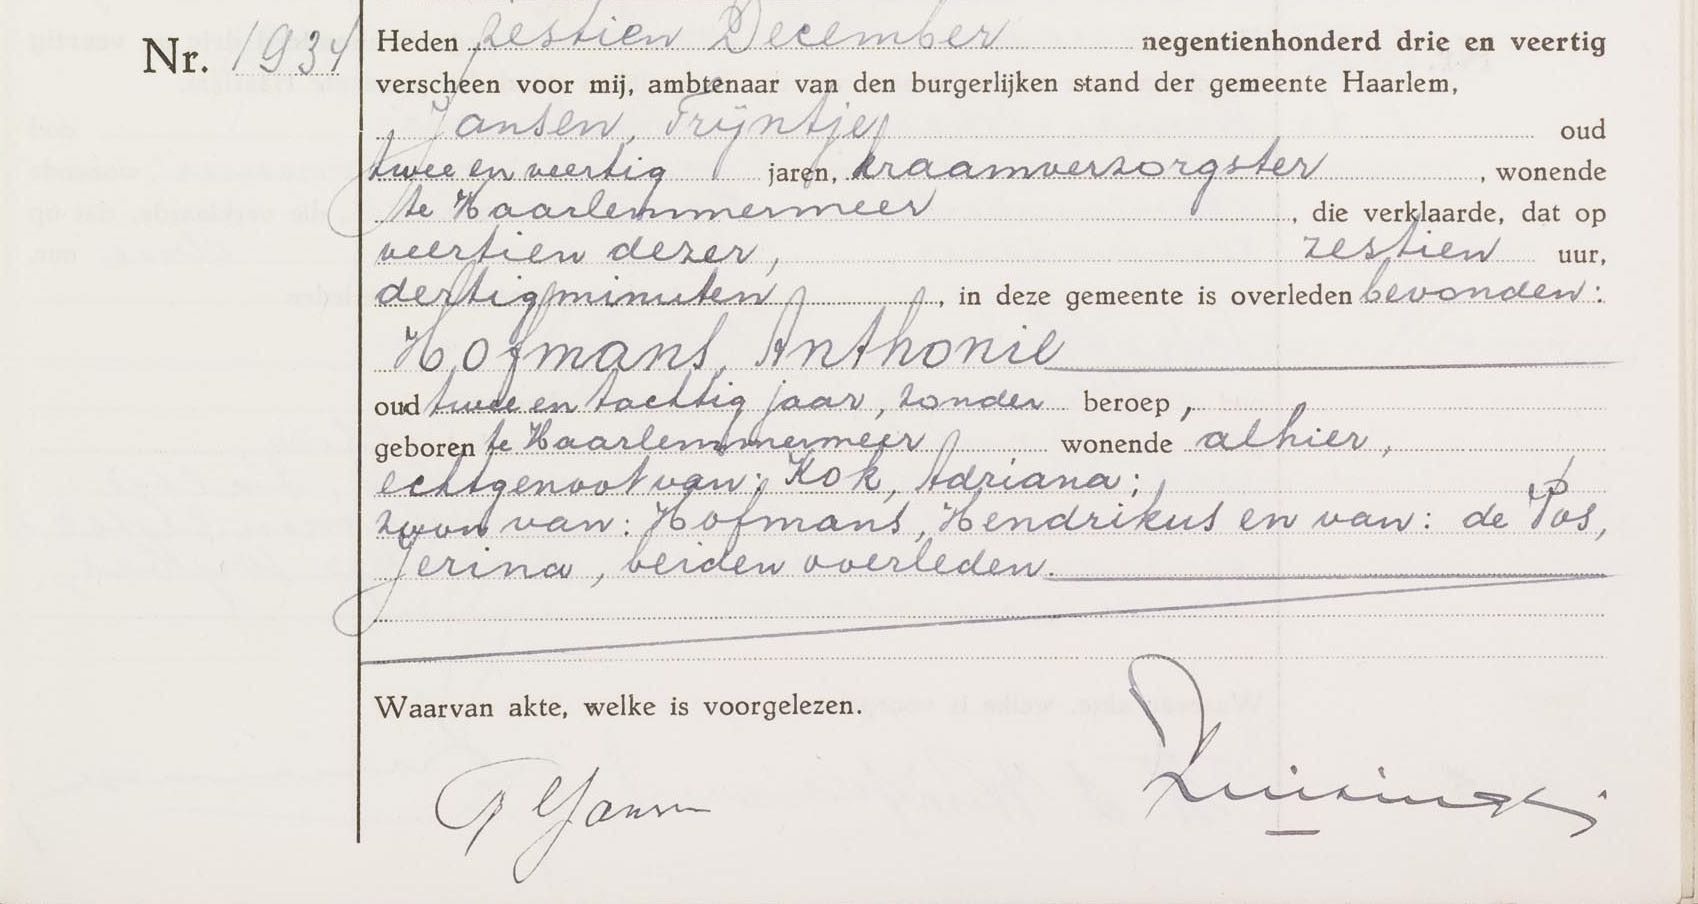 Nr. 1934
Heden zestien December negentienhonderd drie en veertig
verscheen voor mij, ambtenaar van den burgerlijken stand der gemeente Haarlem,
Jansen, Trijntje oud
twee en veertig jaren, kraamverzorgster, wonende
te Haarlemmermeer, die verklaarde, dat op
veertien dezer, zestien uur,
dertig minuten, in deze gemeente is overleden bevonden:
Hofmans, Anthonie
oud twee en tachtig jaar, zonder beroep,
geboren te Haarlemmermeer wonende alhier,
echtgenoot van: Kok, Adriana;
zoon van: Hofmans, Hendrikus en van: de Vos,
Jerina, beiden overleden.
Waarvan akte, welke is voorgelezen.
T Jansen